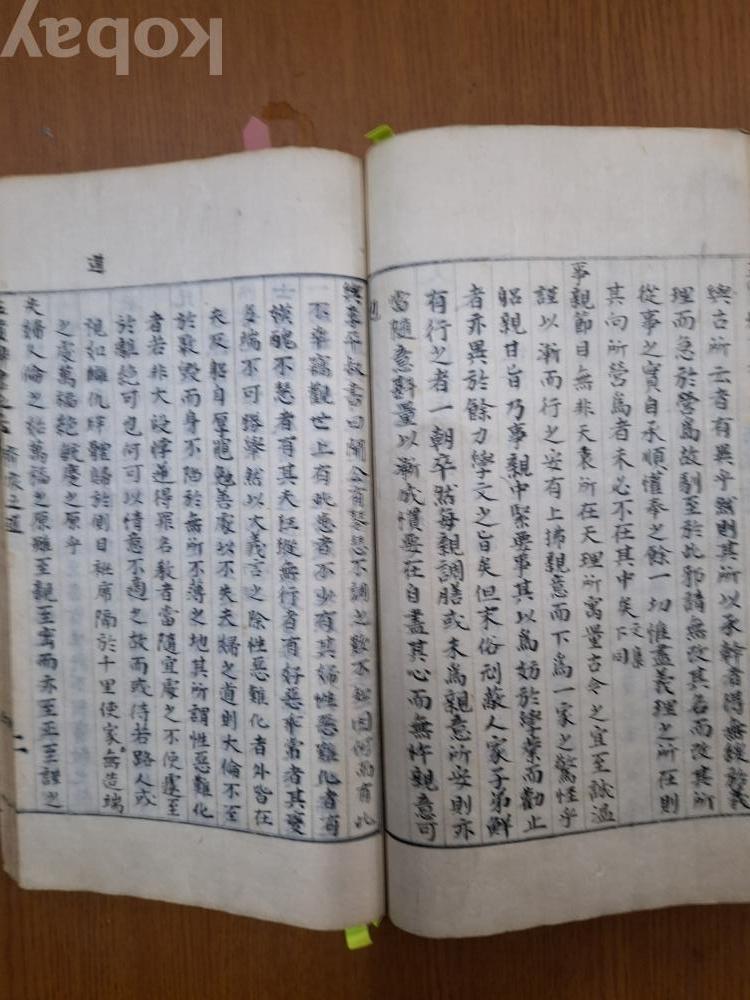 kobay
與古所云者有異乎然則所以承幹者得無緩於義
理而急於營爲故馴至於此耶請無改其名而改其所
從事之實自承順懽奉之餘一切惟盡義理之所在則
其向所營爲者未必不在其中矣文集下同
事親節目無非天衷所在天理所寓量古今之宜至誠溫
謹以漸而行之安有上拂親意而下爲一家之驚怪乎
躬親甘旨乃事親中緊要事其以爲妨於學業而勸止
者亦異於餘力學文之旨矣但末俗刓蔽人家子弟鮮
有行之者一朝卒然每親調膳或未爲親意所安則亦
當隨意斟量以漸成慣要在自盡其心而無忤親意可
也
與李平叔書曰聞公有琴瑟不調之歎不知因何而有此
不幸竊觀世上有此患者不少有其婦性惡難化者有
嫫醜不慧者有其夫狂縱無行者有好惡乖常者其變
多端不可勝擧然以大義言之除性惡難化者外皆在
夫反躬自厚黽勉善處以不失夫婦之道則大倫不至
於斁毀而身不陷於無所不薄之地其所謂性惡難化
者若非大段悖逆得罪名教者當隨宜處之不使遽至
於離絶可也何可以情意不適之故而或待若路人或
視如讎仇牉體歸於側目衽席隔於千里使家無造端
之處萬福絶毓慶之原乎
道
夫婦人倫之始萬福之原雖至親至密而亦至正至謹之
齊家之道 二